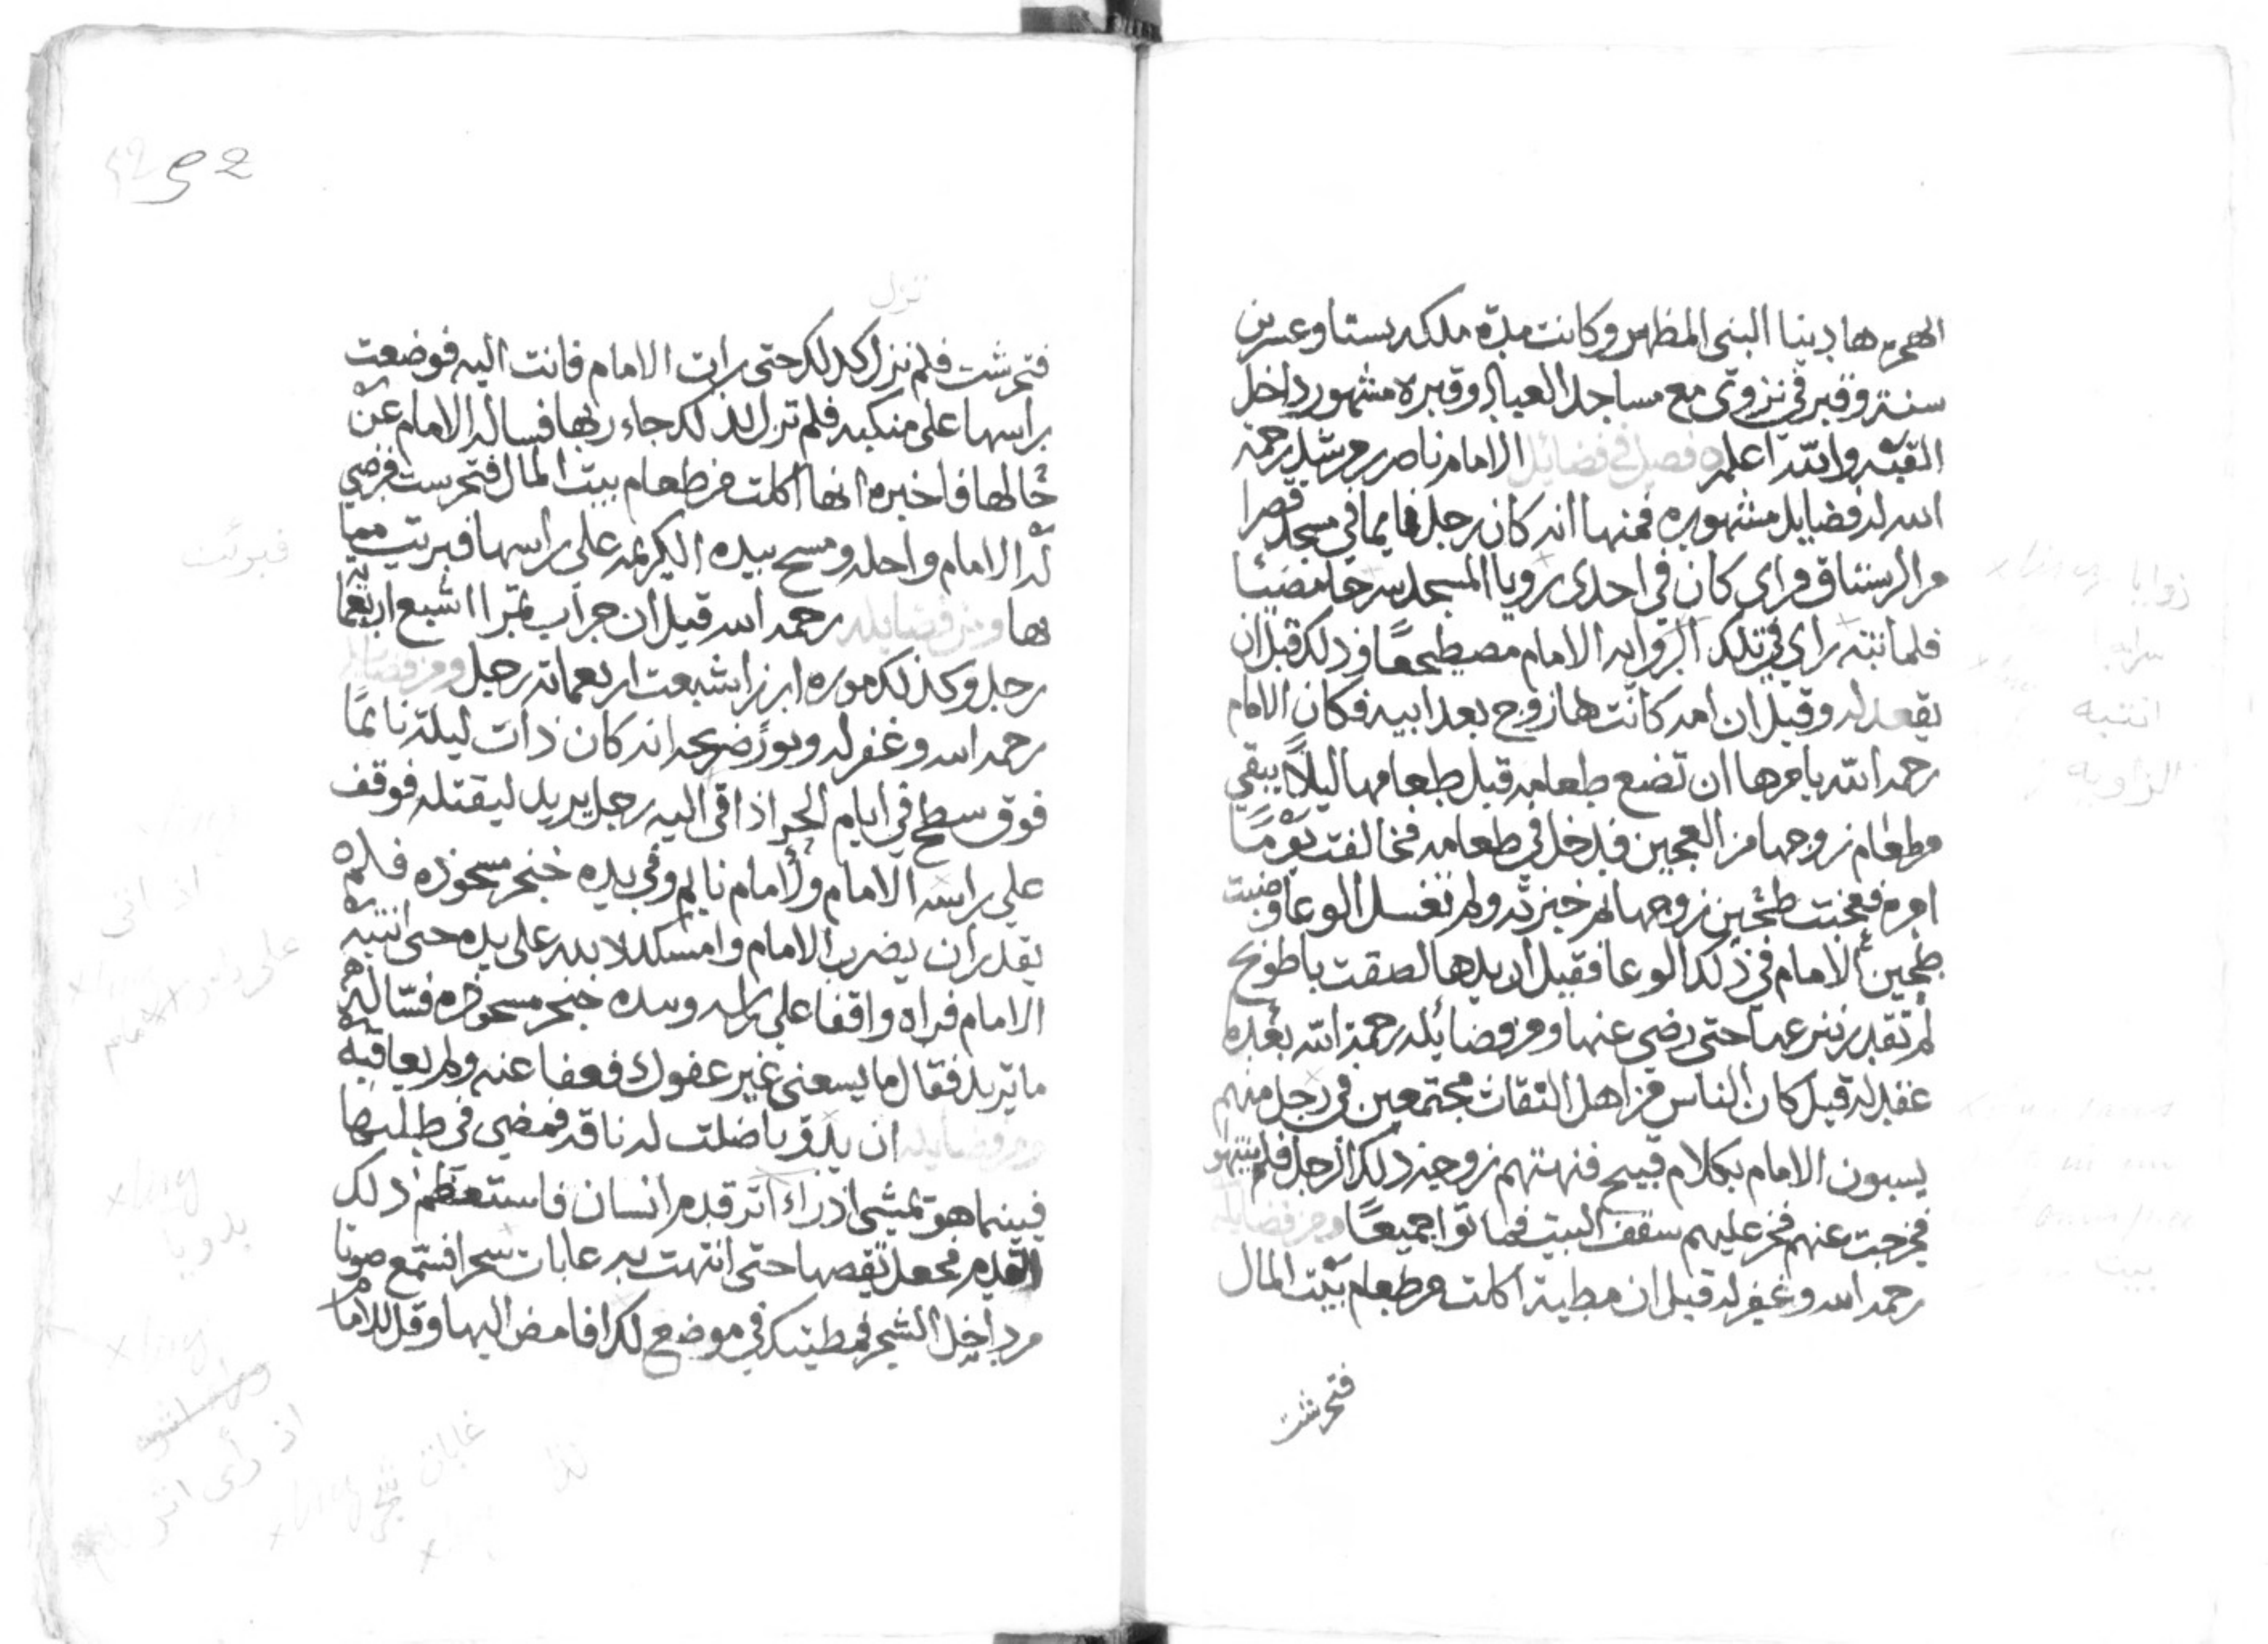 الهجره هاد ينبا النبى المظهر وكانت مدّة ملكه ستا وعسرين
سنة وقبر في نزوى مع مساجد العباد وقبره مشهور داخل
القبّة والله اعلم ه فصل في فضائل الامام ناصر بن مرشد رحمة
الله له فضايل مشهوره فمنها انه كان رجل نايما في مسجد قصرا
من الرستاق فراى كان في احدى رويا المسجد سرجا مضيئا
فلما نتبه راى في تلك الزوايه الامام مصطجعًا وذلك قبل ان
يقعد له وقيل ان امه كانت ها زوج بعد ابيه فكان الامام
رحمه الله يامرها ان تضع طعامه قبل طعامها ليلًا يبقي
من طعام زوجها من العجين فيدخل في طعامه فخالفت يومًا
امره فعجنت طحين زوجها ثم خبزته ولم تغسل الوعا وضبت
طحين الامام في ذلك الوعا فقيل ان يدها لصقت باطونج
لم تقدر تنزعها حتى رضي عنها ومن فضائله رحمة الله بعده
عقد له قيل كان الناس من اهل النقاث مجتمعين في رجل منهم
يسبون الامام بكلام قبيح فنهتهم زوجة ذلك الرجل فلم ينتهو
فخرجت عنهم فخر عليهم سقف البيت فماتوا جميعًا ومن فضايله
رحمه الله وغفر له قيل ان مطية اكلت من طعام بيت المال
فتحرشت
زوايا
سراجا
انتبه
الزاويه
بيت
52
تزل
فتحرشت فلم نزل كذلك حتى رات الامام فاتت اليه فوضعت
راسها على منكبه فلم تزل كذلك جاء ربها فساله الامام عن
حالها فاخبره انها اكلت من طعام بيت المال فتحرست فرضي
له الامام واحله ومسح بيده الكريمه على راسها فبريت مما
بها ومن فضايله رحمه الله قيل ان جراب تمرا اشبع اربعما
رجل وكذلك موره ارز اشبعت اربعماته رجل ومن فضايله
رحمه الله وغفر له ونورً ضريحه انه كان ذات ليلة نائمًا
فوق سطح في ايام الحر اذا قى اليه رجل يريد ليقتله فوقف
على راسه الامام ولأمام نايم وفي يده خنجر مسحوذه فلم
يقدر ان يضرب الامام وامسك لا بده على يده حتى انتبه
الامام فراه واقفا على راسه وبيده خنجر مسحوذه فسّاله
ما تريد فقال ما يسعني غير عفوك فعفا عنه ولم يعاقبه
ومن فضايله ان يدويا ضلت له ناقه فمضي في طلبها
فبينما هو تمشي اذ راء اثر قدم انسان فاستعظم ذلك
القدم فجعل تقصها حتى انتهت به عابات سجر افستمع صوتا
من داخل الشجر فمطيتك في موضع كذا فامض اليها وقل للاما
فبرئت
اذ اتى
على راس
بدويا
اذ رأى اثر
غابات شجر
كذا